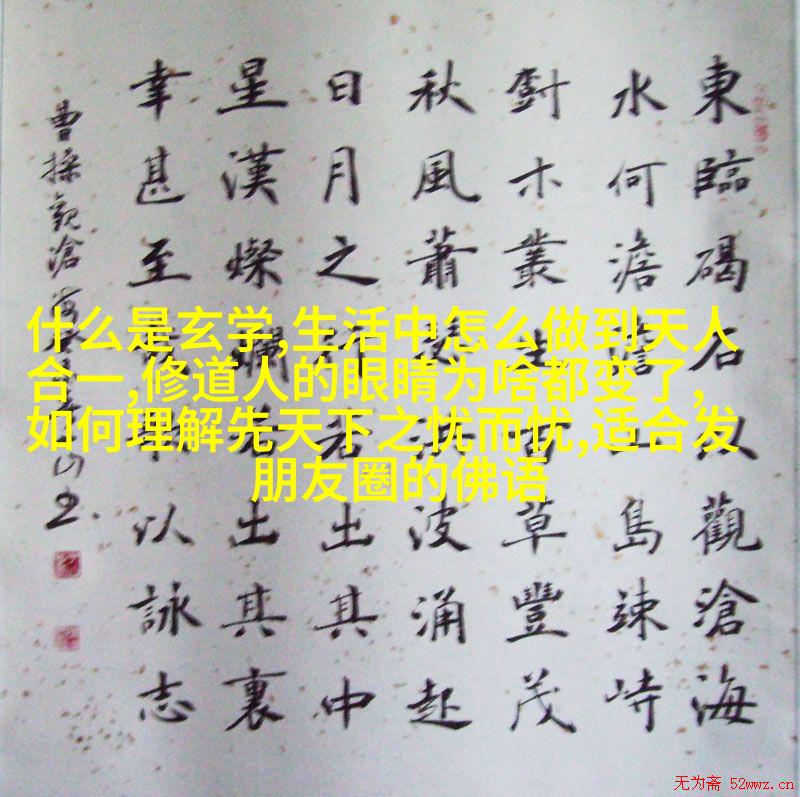 東臨碣石以觀滄海
水何澹澹山島竦峙
樹木叢生百草豐茂
秋風蕭瑟洪波涌起
日月之行若出其中
星漢燦爛若出其裏
幸甚至哉歌以詠志
曹操観滄海
山书
什么是玄学,生活中怎么做到天人
合一,修道人的眼睛为啥都变了,
如何理解先天下之忧而忧,适合发
朋友圈的佛语
无为斋 52wwz.cn